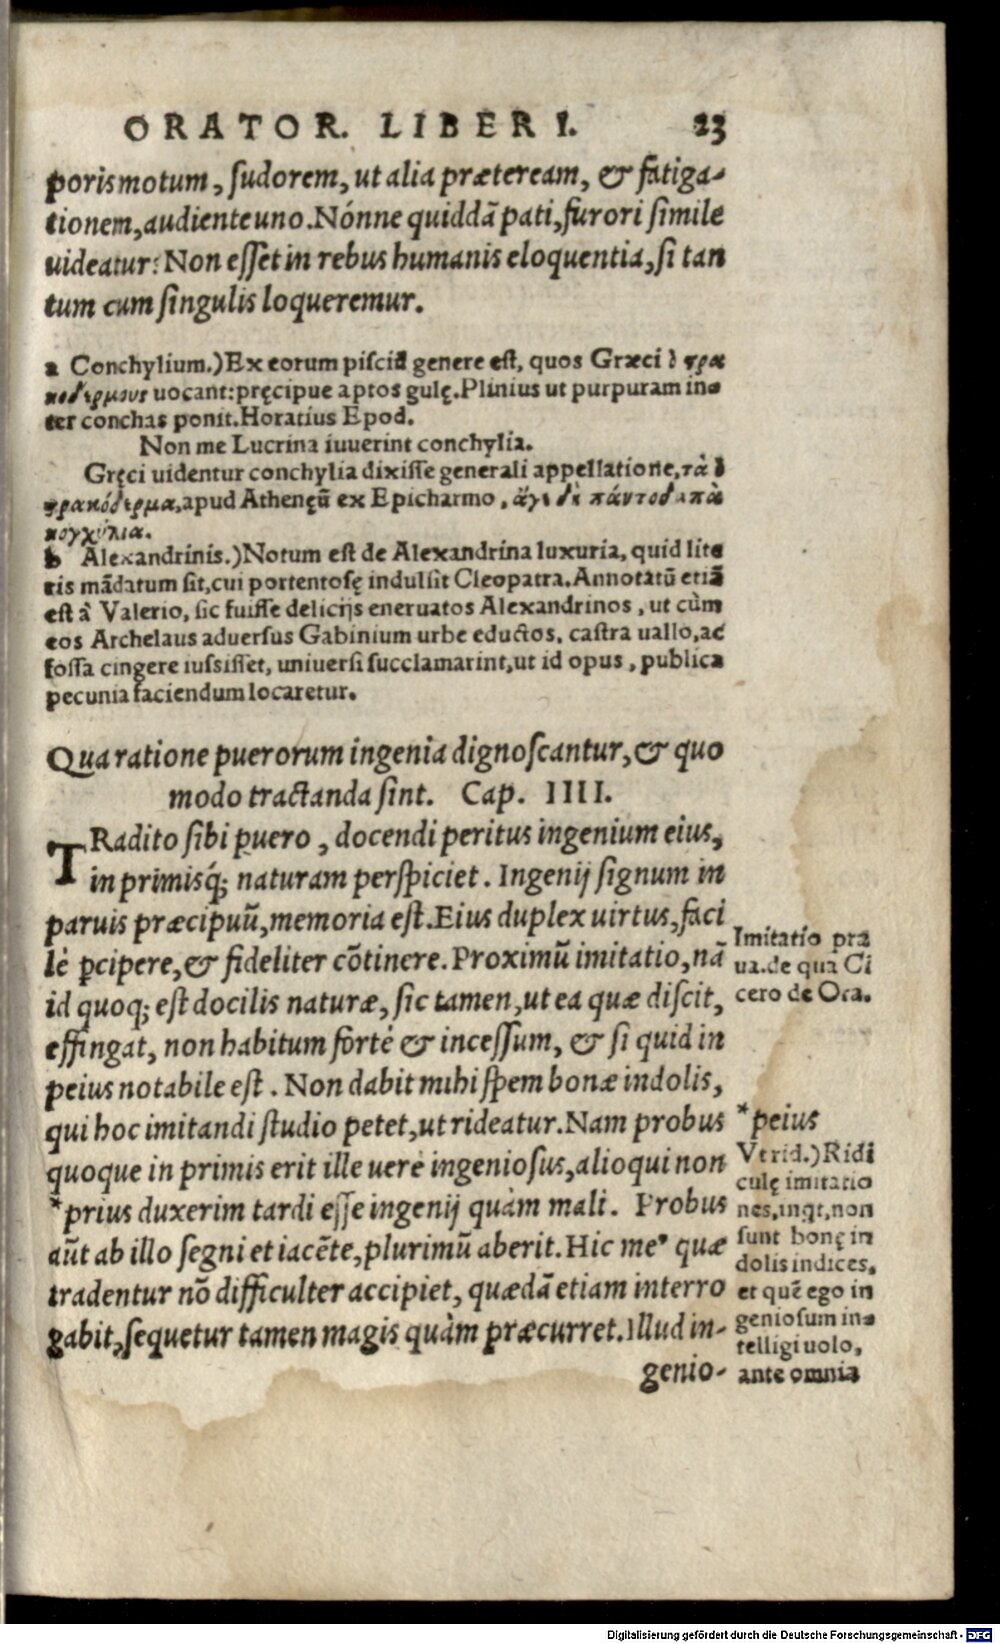 ORATOR. LIBER I. 23
poris motum, sudorem, ut alia præteream, & fatiga-
tionem, audiente uno. Nónne quiddā pati, furori simile
uideatur? Non esset in rebus humanis eloquentia, si tan
tum cum singulis loqueremur.
a Conchylium.) Ex eorum pisciū genere est, quos Græci ὀστρα
κοδέρμους uocant: pręcipue aptos gulę. Plinius ut purpuram in-
ter conchas ponit. Horatius Epod.
Non me Lucrina iuuerint conchylia.
Gręci uidentur conchylia dixisse generali appellatione, τὰ ὀ
στρακόδερμα, apud Athenęū ex Epicharmo, ἄγι δὲ πάντοδαπὰ
κογχύλια.
b Alexandrinis.) Notum est de Alexandrina luxuria, quid lite
ris mādatum sit, cui portentosę indulsit Cleopatra. Annotatū etiā
est à Valerio, sic fuisse delicijs eneruatos Alexandrinos, ut cùm
eos Archelaus aduersus Gabinium urbe eductos, castra uallo, ac
fossa cingere iussisset, uniuersi succlamarint, ut id opus, publica
pecunia faciendum locaretur.
Qua ratione puerorum ingenia dignoscantur, & quo
modo tractanda sint. Cap. IIII.
TRadito sibi puero, docendi peritus ingenium eius,
in primisq́; naturam perspiciet. Ingenij signum in
paruis præcipuū, memoria est. Eius duplex uirtus, faci
lè ꝑcipere, & fideliter cōtinere. Proximū imitatio, nā
id quoq; est docilis naturæ, sic tamen, ut ea quæ discit,
effingat, non habitum fortè & incessum, & si quid in
peius notabile est. Non dabit mihi spem bonæ indolis,
qui hoc imitandi studio petet, ut rideatur. Nam probus
quoque in primis erit ille uerè ingeniosus, alioqui non
*prius duxerim tardi esse ingenij quàm mali. Probus
aūt ab illo segni et iacēte, plurimū aberit. Hic me' quæ
tradentur nō difficulter accipiet, quædā etiam interro
gabit, sequetur tamen magis quàm præcurret. Illud in-
genio-
Imitatio pra
ua. de qua Ci
cero de Ora.
*peius
Vt rid.) Ridi
culę imitatio
nes, inqt, non
sunt bonę in
dolis indices,
et quē ego in
geniosum in-
telligi uolo,
ante omnia
Digitalisierung gefördert durch die Deutsche Forschungsgemeinschaft - DFG